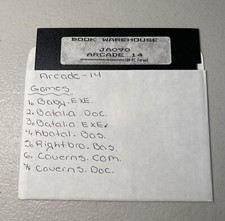 BOOK WAREHOUSE
JA090
ARCADE 14
Arcade-14
Games
1. Baby.EXE
2. Batalia.Doc
3. Batalia.EXE
4. Kbatal.Bas
5. Rightbro.Bas
6. Caverns.Com.
7. Caverns.Doc.